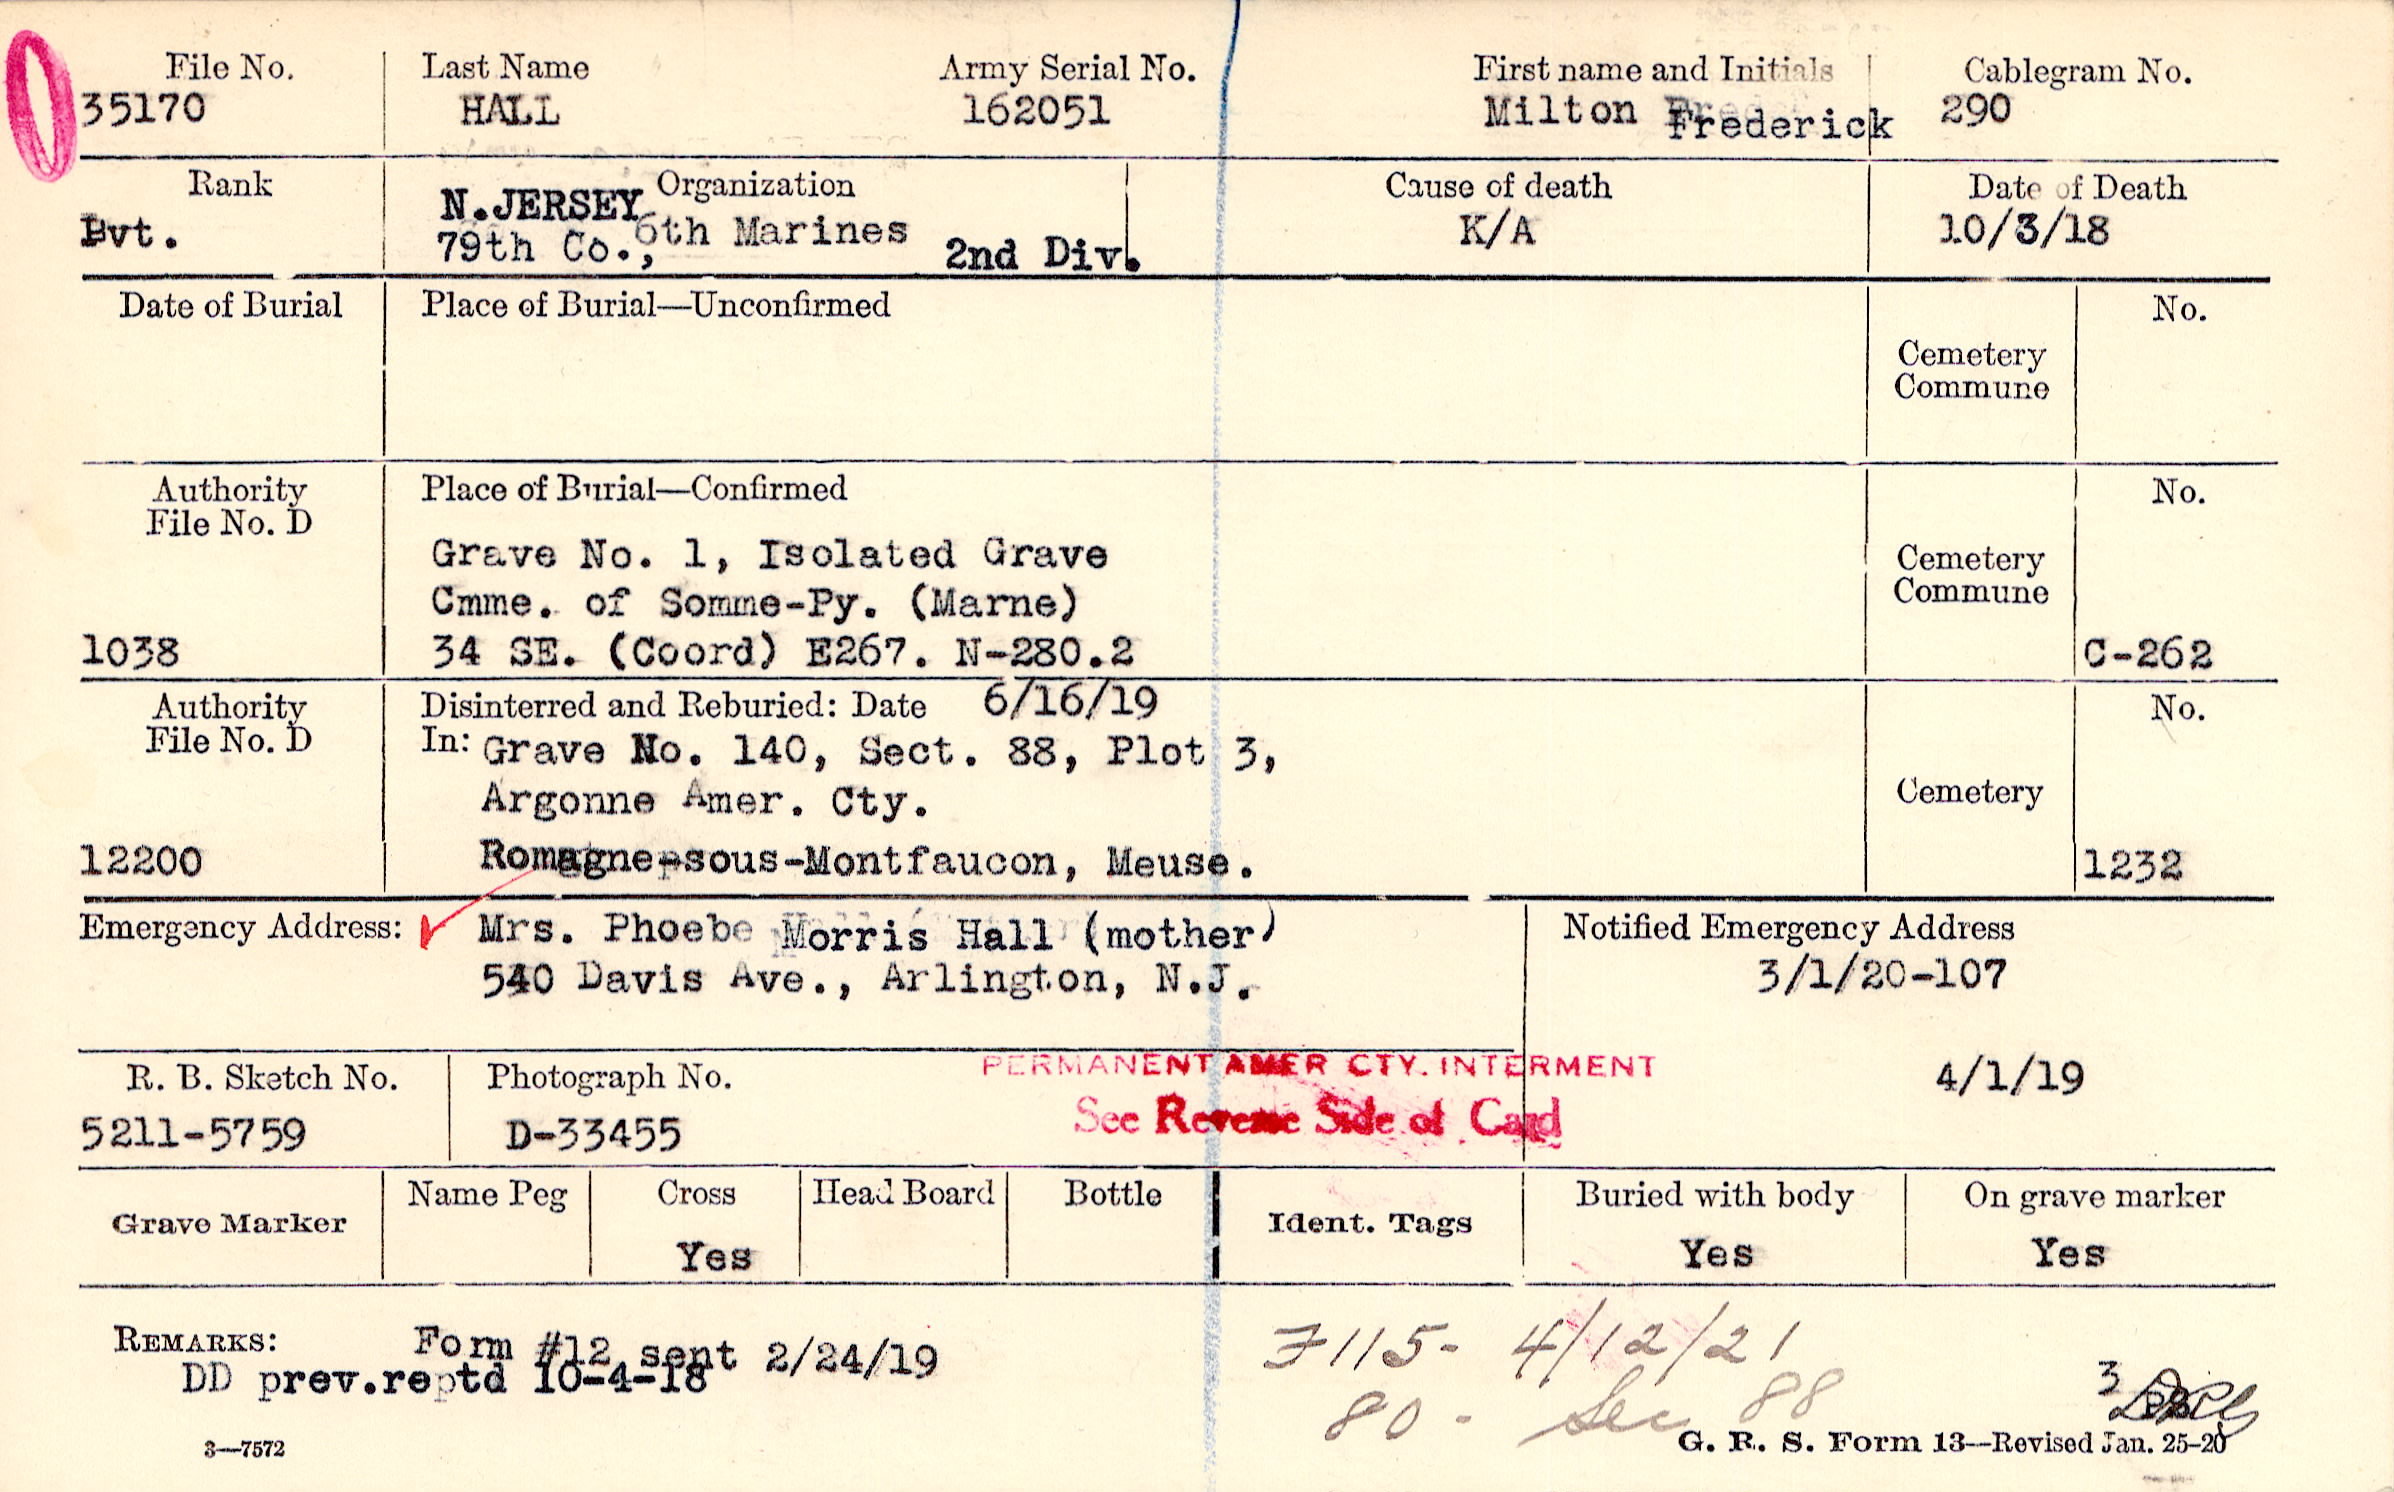 File No. Last Name Army Serial No. First name and Initials Cablegram No.
35170 HALL 162051 Milton Frederick 290
Rank Organization Cause of death Date of Death
Pvt. N.JERSEY 6th Marines K/A 10/3/18
79th Co., 2nd Div.
Date of Burial Place of Burial—Unconfirmed No.
Cemetery
Commune
Authority Place of Burial—Confirmed No.
File No. D
Grave No. 1, Isolated Grave Cemetery
Cmme. of Somme-Py. (Marne) Commune
1038 34 SE. (Coord) E267. N-280.2 C-262
Authority Disinterred and Reburied: Date 6/16/19 No.
File No. D In: Grave No. 140, Sect. 88, Plot 3,
Argonne Amer. Cty. Cemetery
12200 Romagne-sous-Montfaucon, Meuse. 1232
Emergency Address: Mrs. Phoebe Morris Hall (mother) Notified Emergency Address
540 Davis Ave., Arlington, N.J. 3/1/20-107
PERMANENT AMER CTY. INTERMENT
R. B. Sketch No. Photograph No. 4/1/19
5211-5759 D-33455 See Reverse Side of Card
Grave Marker Name Peg Cross Head Board Bottle Ident. Tags Buried with body On grave marker
Yes Yes Yes
REMARKS: Form #12 sent 2/24/19 7115- 4/12/21
DD prev.reptd 10-4-18 3
80- Sec 88
3—7572 G. R. S. Form 13—Revised Jan. 25-20